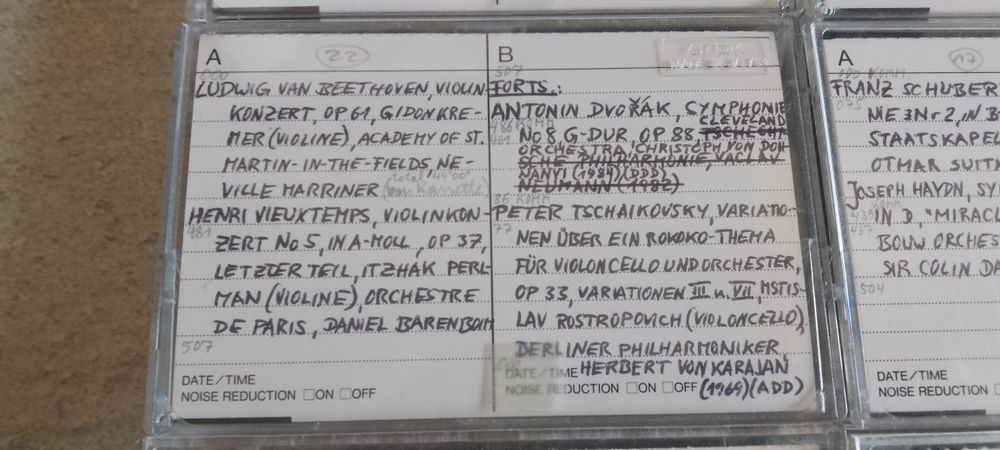 A
22
000
LUDWIG VAN BEETHOVEN, VIOLIN-
KONZERT, OP 61, GIDON KRE-
MER (VIOLINE), ACADEMY OF ST.
MARTIN-IN-THE-FIELDS, NE-
VILLE MARRINER (von Kassette)
total 44'00"
HENRI VIEUXTEMPS, VIOLINKON-
481
ZERT No 5, IN A-MOLL, OP 37,
LETZTER TEIL, ITZHAK PERL-
MAN (VIOLINE), ORCHESTRE
DE PARIS, DANIEL BARENBOIM
507
DATE/TIME
NOISE REDUCTION ☐ON ☐OFF
B
507
FORTS.:
ANTONIN DVOŘÁK, SYMPHONIE
No 8, G-DUR, OP 88, TSCHECHI-
CLEVELAND
ORCHESTRA, CHRISTOPH VON DOH-
SCHE PHILHARMONIE, VACLAV
NANYI (1984) (DDD)
NEUMANN (1982)
86 KOMM
PETER TSCHAIKOVSKY, VARIATIO-
77
NEN ÜBER EIN ROKOKO-THEMA
FÜR VIOLONCELLO UND ORCHESTER,
OP 33, VARIATIONEN III u. VII, MSTIS-
LAV ROSTROPOVICH (VIOLONCELLO),
BERLINER PHILHARMONIKER,
HERBERT VON KARAJAN
DATE/TIME
NOISE REDUCTION ☐ON ☐OFF
(1969) (ADD)
A
17
000 KOMM.
FRANZ SCHUBER
075
NIE No 2, IN B
STAATSKAPEL
OTMAR SUITN
JOSEPH HAYDN, SY
KOMM
IN D, "MIRACL
437
BOUW ORCHES
SIR COLIN DA
504
DATE/TIME
NOISE REDUCTIO